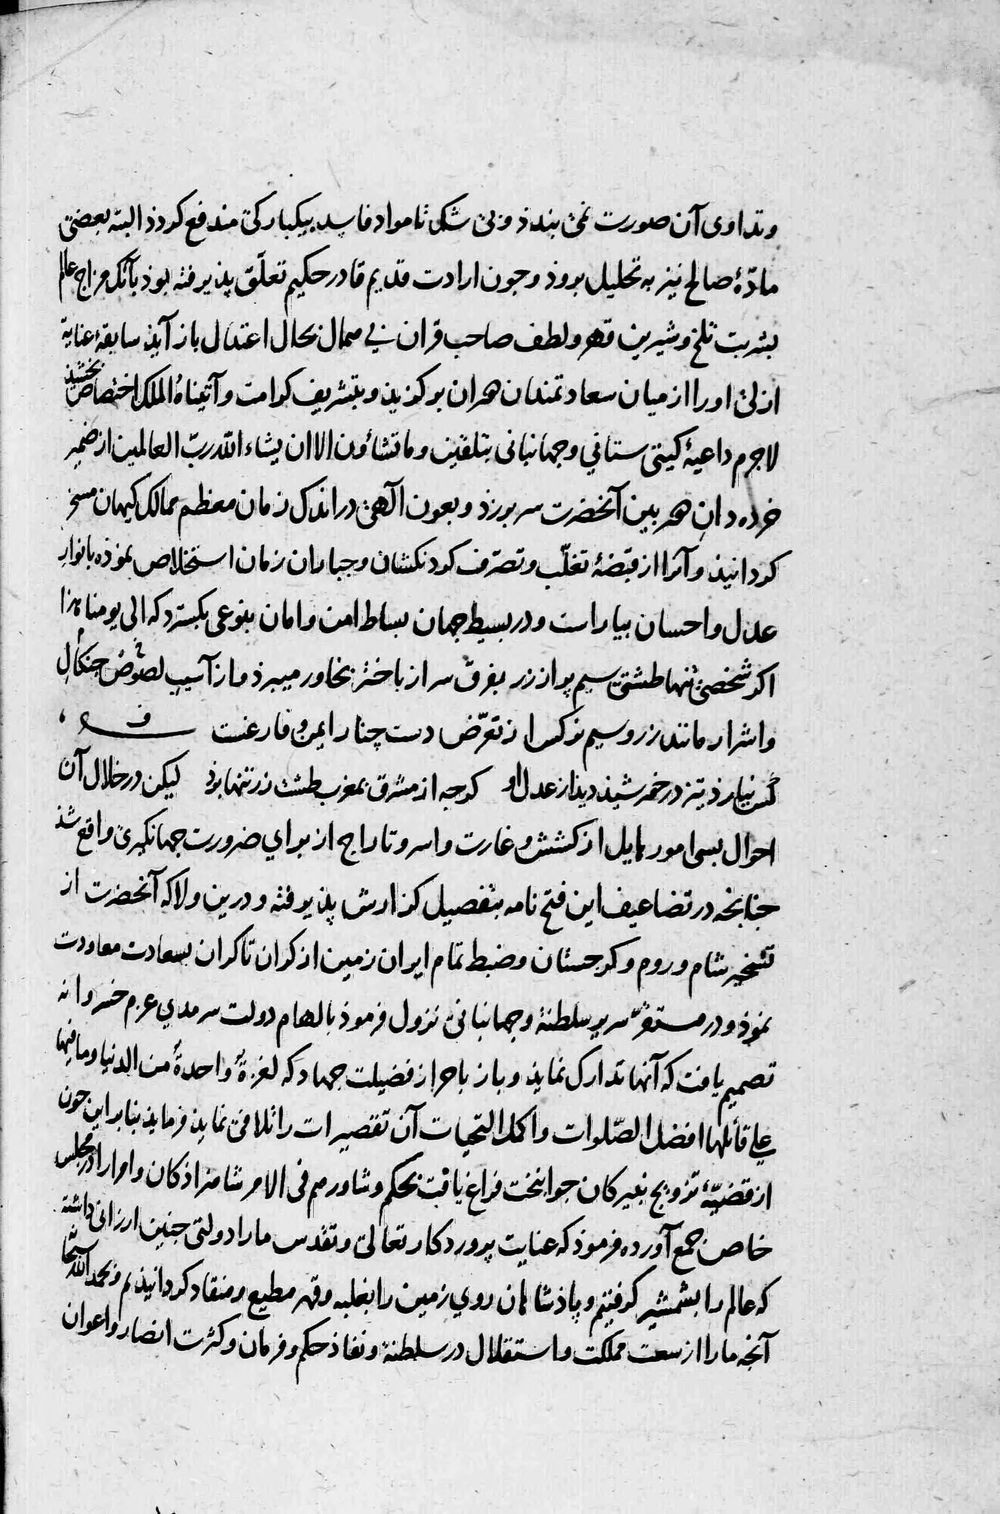 وتداوی آن صورت نمی بندذ و بی شک تا مواد فاسد بیکبارکی مندفع کردذ البته بعضی
مادّهٔ صالح نیز به تحلیل بروذ وجون ارادت قدیم قادر حکیم تعلّق پذیرفته بوذ بآنک مزاج عالم
بشربت تلخ وشیرین قهر ولطف صاحب قران بی همال بحال اعتدال باز آیذ سابقهٔ عنایة
ازلی اورا از میان سعادتمندان هران برکزیذ وبتشریف کرامت وآتیناهُ الملک اختصاص بخشیذ
لاجرم داعیهٔ کیتی ستانی وجهانبانی بتلقین وما تشاؤن الا ان یشاء الله ربّ العالمین از ضمیر
خرده دانِ هنر بین آنحضرت سر برزذ وبعون آلهی در اندک زمان معظم ممالک کیهان مسخر
کردانیذ وآنرا از قبضهٔ تغلّب وتصرّف کردنکشان وجباران زمان استخلاص نموذه بانوار
عدل واحسان بیاراست ودر بسیط جهان بساط امن وامان بنوعی بکسترد که الی یومنا هذا
اکر شخصی تنها طشتی سیم پر از زر بفرق سر از باختر بخاور میبرذ از آسیب لصوص جنکال
واشرار مانند زر وسیم نرکس از تعرّض دست چنار ایمن وفارغست
کس نیارذ تیز در خمر شیذ دید از عدل او کرجه از مشرق بمغرب طشت زر تنها بوذ لیکن در خلال آن
احوال بسی امور هایل از کشش وغارت واسر وتاراج از برای ضرورت جهانکیری واقع شذ
جنانجه در تضاعیف این فتح نامه بتفصیل کزارش پذیرفته ودرین ولا که آنحضرت از
تسخیر شام وروم وکرجستان وضبط تمام ایران زمین از کران تا کران بسعادت معاودت
نموذ ودر مستقرّ سریر سلطنة وجهانبانی نزول فرموذ بالهام دولت سرمدی عزم خسروانه
تصمیم یافت که آنها تدارک نمایذ وباز باحراز فضیلت جهاد که لغزوةٌ واحدةٌ من الدنیا وما فیها
علی قائلها افضل الصّلوات واکمل التحیات آن تقصیرات را تلافی نمایذ فرمایذ بنابراین جون
از قضیّهٔ تزویج نبیرکان جوانبخت فراغ یافت بحکم وشاورهم فی الامر شاهزاذکان وامرا را در مجلس
خاص جمع آورده فرموذ که عنایت پروردکار تعالی وتقدس مارا دولتی جنین ارزانی داشته
که عالم را بشمشیر کرفتیم وپاذشاهان روی زمین را بغلبه وقهر مطیع ومنقاد کردانیذیم وبحمد الله
آنجه مارا از سعت مملکت واستقلال در سلطنة ونفاذ حکم وفرمان وکثرت انصار واعوان